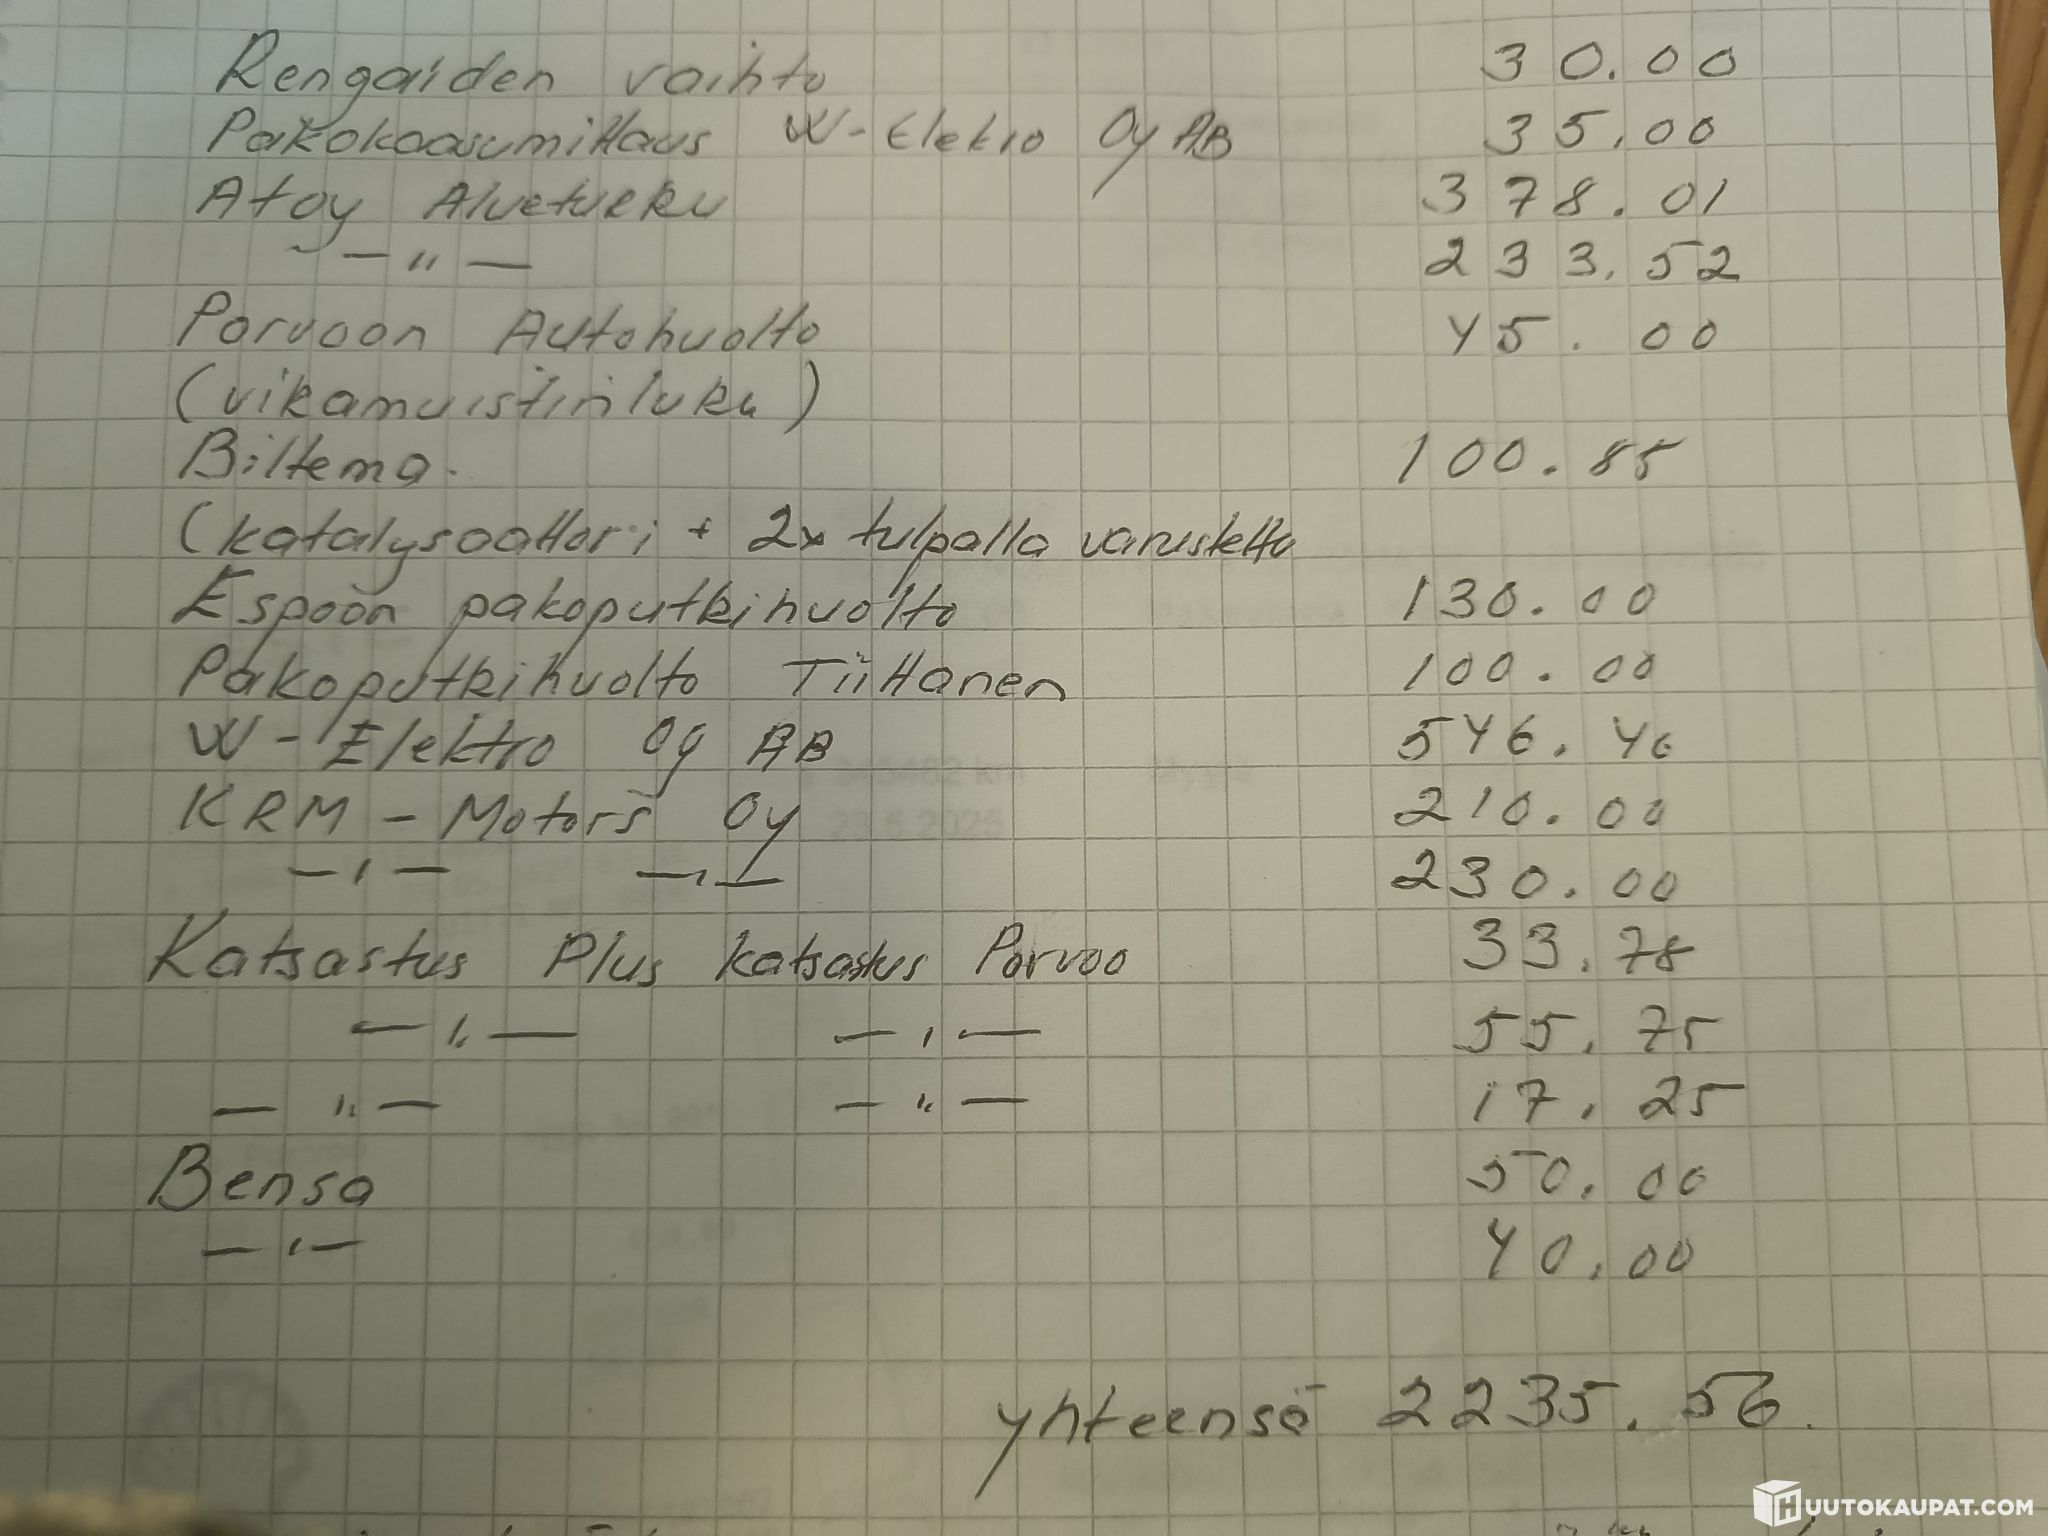 Rengaiden vaihto 30.00
Pakokaasumittaus W-Elektro Oy AB 35.00
Atoy Alvetukku 378.01
— " — 233.52
Porvoon Autohuolto 45.00
(vikamuistinluku)
Biltema. 100.85
(katalysaattori + 2x tulpalla varustettu
Espoon pakoputkihuolto 130.00
Pakoputkihuolto Tiittanen 100.00
W-Elektro Oy AB 546.40
KRM - Motors Oy 210.00
— " — — " — 230.00
Katsastus Plus katsastus Porvoo 33.78
— " — — " — 55.75
— " — — " — 17.25
Bensa 50.00
— " — 40.00
yhteensä 2235.56.
HUUTOKAUPAT.COM